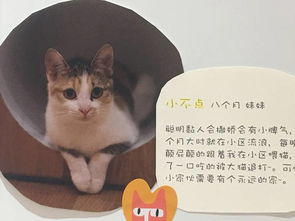 小不点 八个月 妹妹
聪明黏人会撒娇会有小脾气,
个月大时就在小区流浪, 每
颠屁颠的跟着我在小区喂猫,
了一口咛的被大猫追打~。可
小家伙需要有个永远的家~。